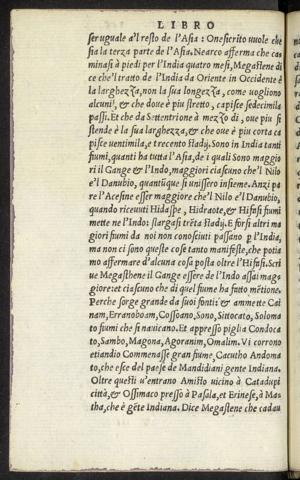 LIBRO
ser uguale a'l resto de l'Asia: Onesicrito vuole che
sia la terza parte de l'Asia. Nearco afferma che ca=
minasi à piedi per l'India quatro mesi, Megastene di
ce che'l tratto de l'India da Oriente in Occidente è
la larghezza, non la sua longezza, come uogliono
alcuni, & che doue è piu stretto, capisse sedecimila
passi. Et che da Settentrione à mezzo di, oue piu si
stende è la sua larghezza, & che oue è piu corta ca
pisse uentimila, e trecento stadij. Sono in India tanti
fiumi, quanti ha tutta l'Asia, de i quali Sono maggio
ri il Gange & l'Indo, maggiori ciascuno che'l Nilo
e'l Danubio, quantūque si unissero insieme. Anzi pa
re l'Acesine esser maggiore che'l Nilo e'l Danubio,
quando riceuuti Hidaspe, Hidraote, & Hifasi fumi
mette ne l'Indo: slargasi trēta stadij. E forsi altri ma
giori fiumi da noi non conosciuti passano p l'India,
ma non ci sono queste cose tanto manifeste, che potia
mo affermare d'alcuna cosa posta oltre l'Hifasi. Scri
ue Megasthene il Gange essere de l'Indo assai mag=
giore: et ciascuno che di quel fiume ha fatto mētione.
Perche sorge grande da suoi fonti: & ammette Cai
nam, Erranoboam, Cossoano, Sono, Sittocato, Soloma
to fiumi che si nauicano. Et appresso piglia Condoca
to, Sambo, Magona, Agoranim, Omalim. Vi corrono
etiandio Commenasse gran fiume, Cacutho Andoma
to, che esce del paese de Mandidiani gente Indiana.
Oltre questi u'entrano Amisto uicino à Catadupi
città, & Ossimaco presso à Pasala, et Erinese, à Mas
tha, che è gēte Indiana. Dice Megastene che cadau